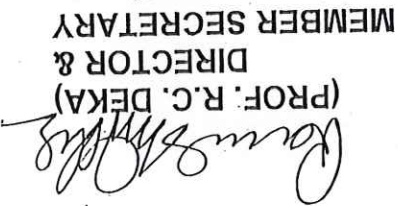 (PROF. R.C. DEKA)
DIRECTOR &
MEMBER SECRETARY